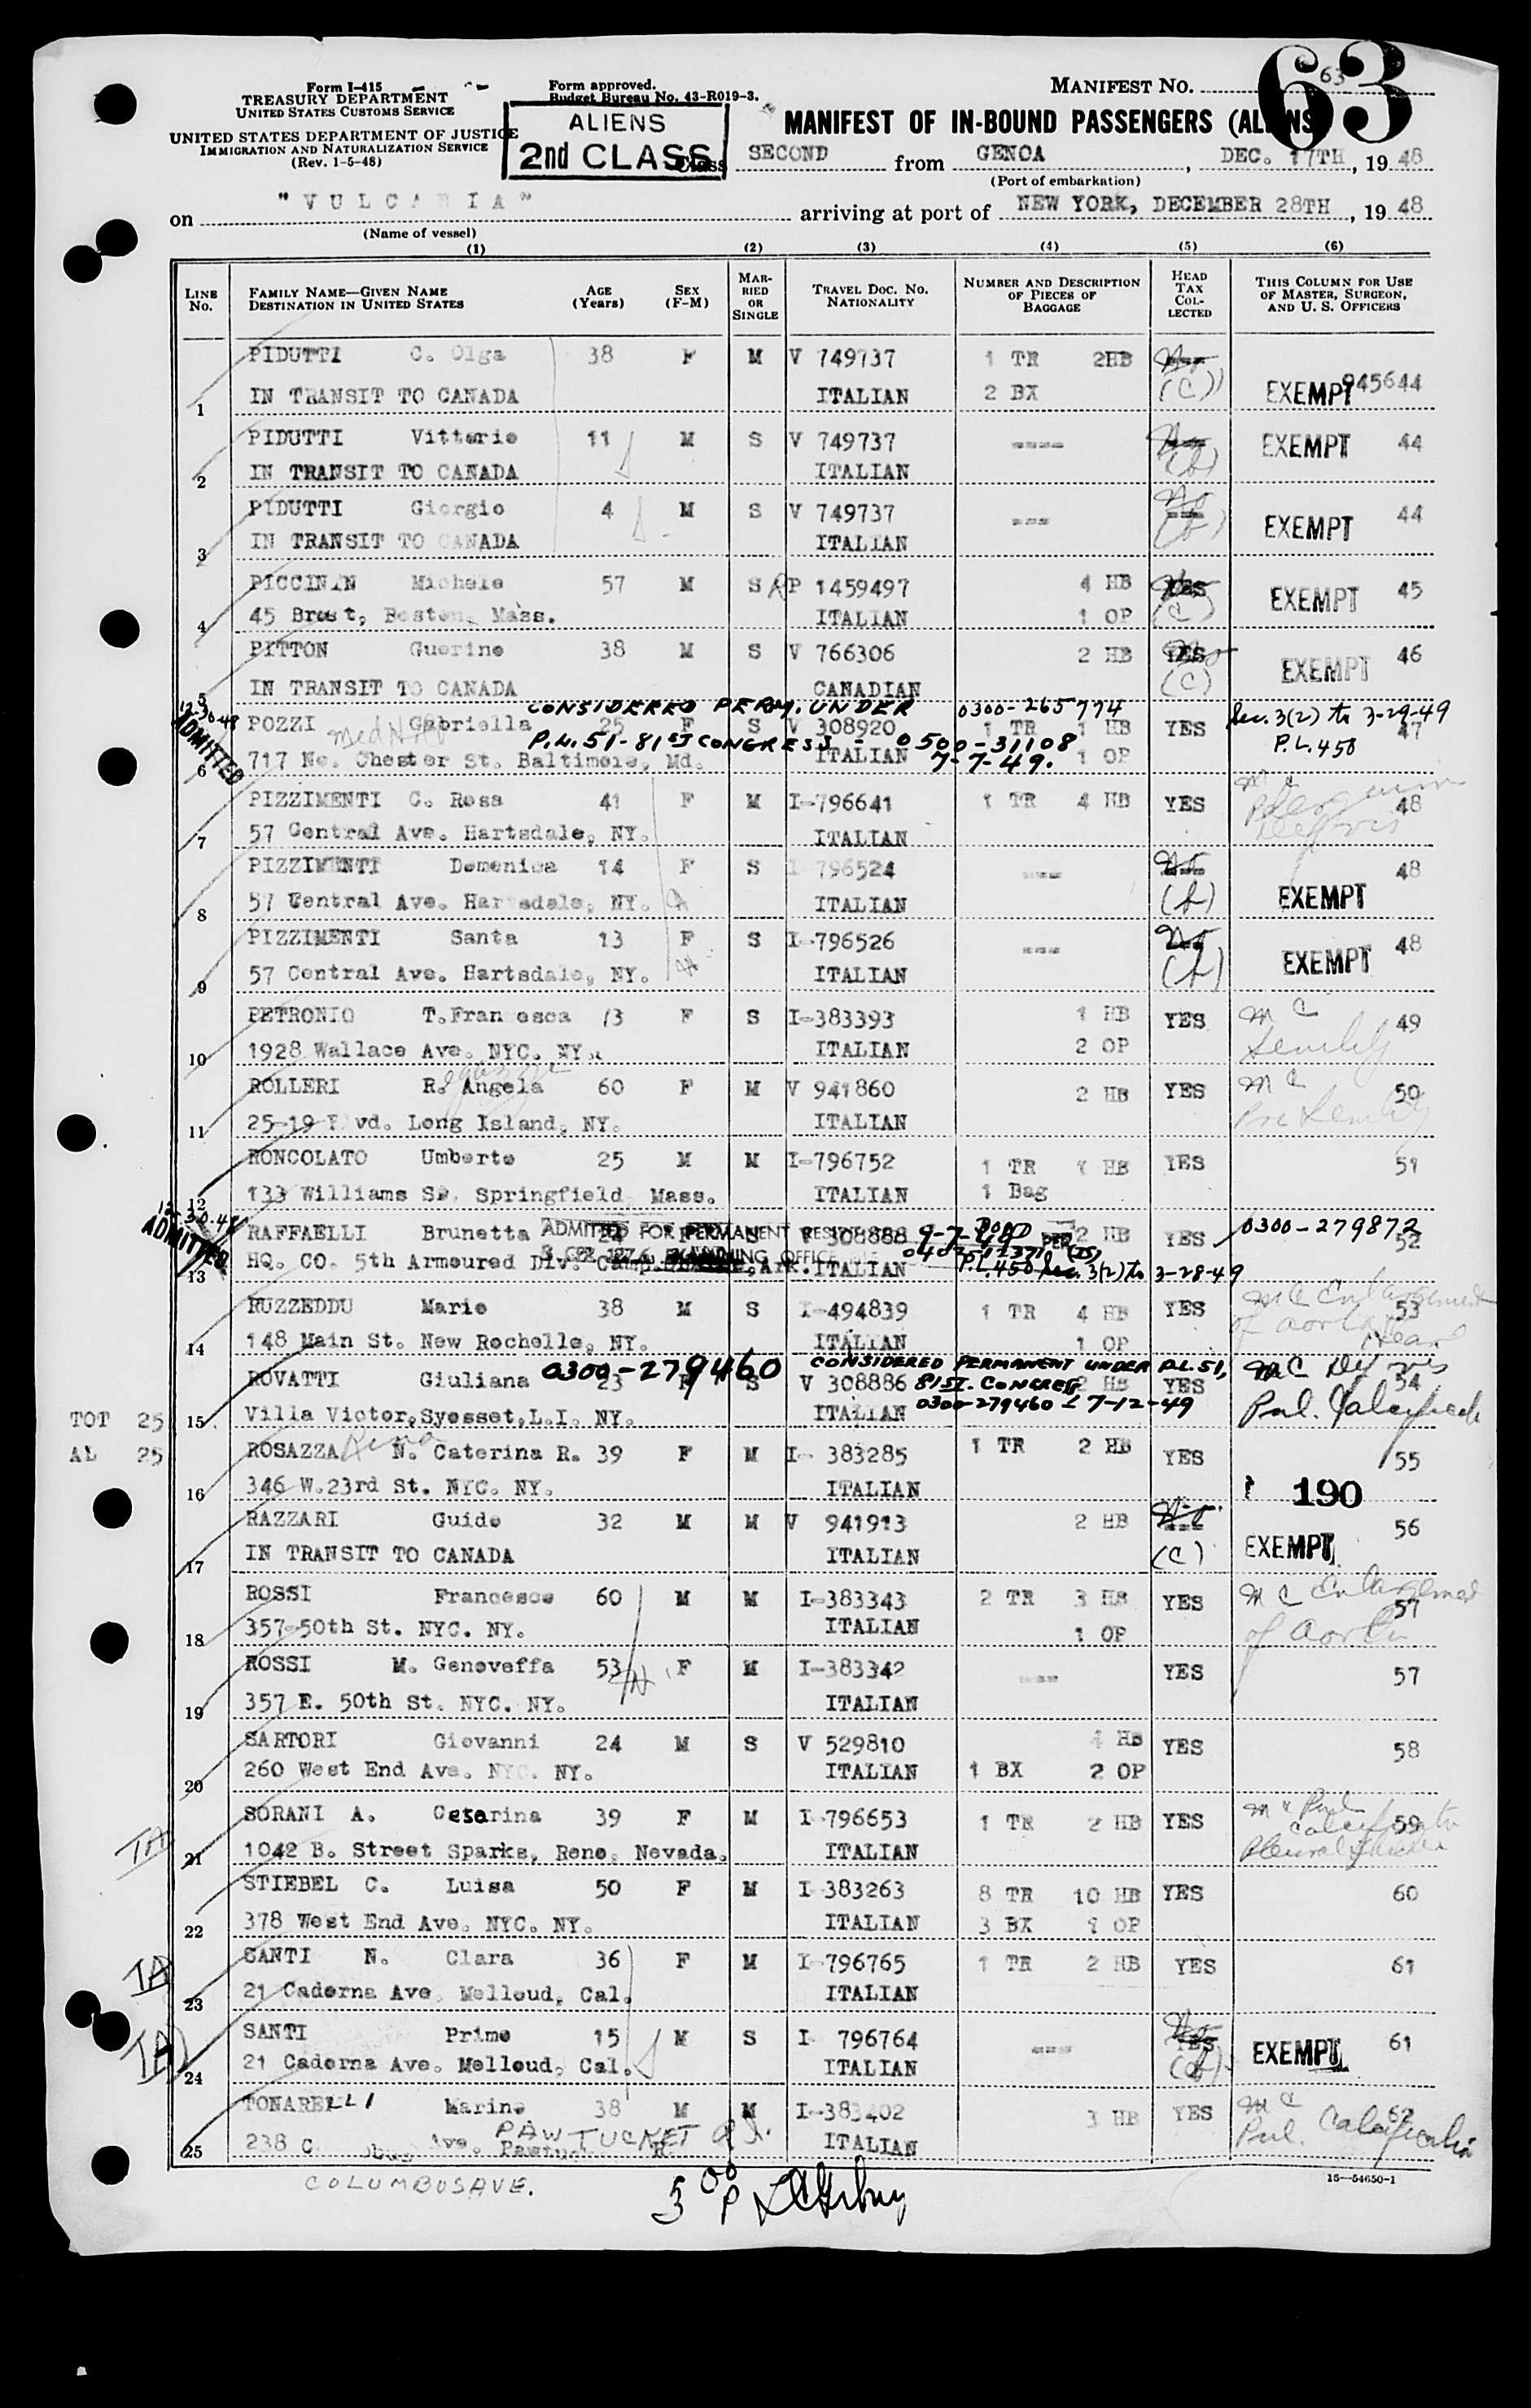 63
Form I-415
TREASURY DEPARTMENT
UNITED STATES CUSTOMS SERVICE
UNITED STATES DEPARTMENT OF JUSTICE
IMMIGRATION AND NATURALIZATION SERVICE
(Rev. 1-5-48)
Form approved.
Budget Bureau No. 43-R019-3.
ALIENS
2nd CLASS
MANIFEST NO. 63
MANIFEST OF IN-BOUND PASSENGERS (ALIENS
Class SECOND from GENOA, DEC. 17TH, 1948
(Port of embarkation)
on "VULCANIA" arriving at port of NEW YORK, DECEMBER 28TH, 1948
(Name of vessel)
(1) (2) (3) (4) (5) (6)
LINE NO. FAMILY NAME—GIVEN NAME DESTINATION IN UNITED STATES AGE (Years) SEX (F-M) MARRIED OR SINGLE TRAVEL DOC. NO. NATIONALITY NUMBER AND DESCRIPTION OF PIECES OF BAGGAGE HEAD TAX COLLECTED THIS COLUMN FOR USE OF MASTER, SURGEON, AND U. S. OFFICERS
PIDUTTI C. Olga 38 F M V 749737 1 TR 2HB No
1 IN TRANSIT TO CANADA ITALIAN 2 BX (C) EXEMPT 945644
PIDUTTI Vittorio 11 M S V 749737 ---- No EXEMPT 44
2 IN TRANSIT TO CANADA ITALIAN
PIDUTTI Giorgio 4 M S V 749737 --- No EXEMPT 44
3 IN TRANSIT TO CANADA ITALIAN
PICCININ Michele 57 M S P 1459497 4 HB YES EXEMPT 45
4 45 Brest, Boston, Mass. ITALIAN 1 OP (C)
PITTON Guerino 38 M S V 766306 2 HB YES EXEMPT 46
5 IN TRANSIT TO CANADA CANADIAN (C)
12-30-48 ADMITTED CONSIDERED PERM. UNDER 0300-265774 Sec. 3(2) to 3-29-49
POZZI Gabriella 25 F S V 308920 1 TR 1 HB YES 47
P.L. 51-81st CONGRESS - 0500-31108 P.L. 450
6 717 No. Chester St. Baltimore, Md. ITALIAN 7-7-49. 1 OP
PIZZIMENTI C. Rosa 41 F M I-796641 1 TR 4 HB YES 48
7 57 Central Ave. Hartsdale, NY. ITALIAN
PIZZIMENTI Domenica 14 F S I 796524 --- No 48
8 57 Central Ave. Hartsdale, NY. ITALIAN EXEMPT
PIZZIMENTI Santa 13 F S I-796526 --- No 48
9 57 Central Ave. Hartsdale, NY. ITALIAN EXEMPT
PETRONIO T.Francesca 73 F S I-383393 1 HB YES MC 49
10 1928 Wallace Ave. NYC. NY. ITALIAN 2 OP Senility
ROLLERI R. Angela 60 F M V 941860 2 HB YES MC 50
11 25-19 vd. Long Island, NY. ITALIAN Pre Senility
RONCOLATO Umberto 25 M M I-796752 1 TR 1 HB YES 51
12 133 Williams St. Springfield, Mass. ITALIAN 1 Bag
12-30-48 ADMITTED
RAFFAELLI Brunetta 24 F S V 308888 2 HB YES 0300-279872 52
ADMITTED FOR PERMANENT
13 HQ. CO. 5th Armoured Div. Camp, Ark. ITALIAN P.L. 450 Sec. 3(2) to 3-28-49
RUZZEDDU Mario 38 M S I-494839 1 TR 4 HB YES MC Enlargement 53
14 148 Main St. New Rochelle, NY. ITALIAN 1 OP of aorta Heart
0300-279460 CONSIDERED PERMANENT UNDER P.L. 51,
ROVATTI Giuliana 23 F S V 308886 81ST. CONGRESS 2 HB YES MC Def vis 54
15 Villa Victor, Syosset, L.I. NY. ITALIAN 0300-279460 7-12-49 Pul. Calcification
TOT 25
AL 25
ROSAZZA N. Caterina R. 39 F M I- 383285 1 TR 2 HB YES 55
16 346 W.23rd St. NYC. NY. ITALIAN 190
RAZZARI Guido 32 M M V 941913 2 HB No 56
17 IN TRANSIT TO CANADA ITALIAN (C) EXEMPT
ROSSI Francesco 60 M M I-383343 2 TR 3 HB YES MC Enlargement 57
18 357-50th St. NYC. NY. ITALIAN 1 OP of aorta
ROSSI M. Genoveffa 53 F M I-383342 ---- YES 57
19 357 E. 50th St. NYC. NY. ITALIAN
SARTORI Giovanni 24 M S V 529810 4 HB YES 58
20 260 West End Ave. NYC. NY. ITALIAN 1 BX 2 OP
SORANI A. Cesarina 39 F M I 796653 1 TR 2 HB YES 59
TA 21 1042 B. Street Sparks, Reno, Nevada. ITALIAN
STIEBEL C. Luisa 50 F M I 383263 8 TR 10 HB YES 60
22 378 West End Ave. NYC. NY. ITALIAN 3 BX 1 OP
SANTI N. Clara 36 F M I-796765 1 TR 2 HB YES 61
TA 23 21 Caderna Ave. Melloud, Cal. ITALIAN
SANTI Primo 15 M S I 796764 --- YES EXEMPT 61
TA 24 21 Caderna Ave. Melloud, Cal. ITALIAN
TONARELLI Marino 38 M M I-383402 3 HB YES MC 62
25 238 C Ave. PAWTUCKET R.I. ITALIAN Pul. Calcification
COLUMBUS AVE.
16—54650-1